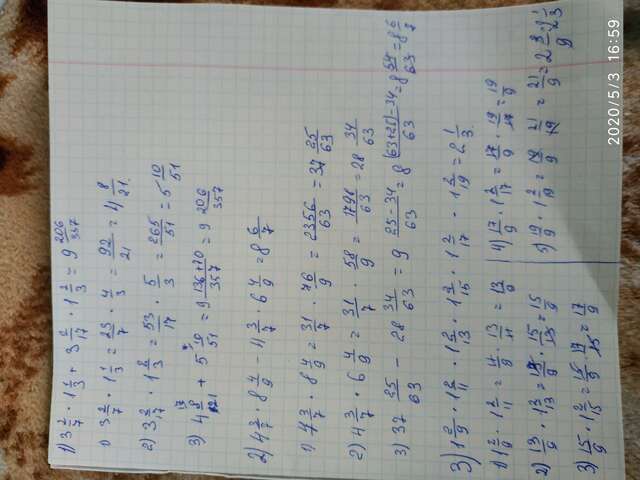 1) 3 2/7 · 1 1/3 + 3 2/17 · 1 2/3 = 9 206/357
1) 3 2/7 · 1 1/3 = 23/7 · 4/3 = 92/21 = 4 8/21.
2) 3 2/17 · 1 2/3 = 53/17 · 5/3 = 265/51 = 5 10/51
3) 4 8/21 + 5 10/51 = 9 136+70/357 = 9 206/357
2) 4 3/7 · 8 4/9 - 4 3/7 · 6 4/9 = 8 6/7
1) 4 3/7 · 8 4/9 = 31/7 · 76/9 = 2356/63 = 37 25/63
2) 4 3/7 · 6 4/9 = 31/7 · 58/9 = 1798/63 = 28 34/63
3) 37 25/63 - 28 34/63 = 9 25-34/63 = 8 (63+25)-34/63 = 8 54/63 = 8 6/7
3) 1 2/9 · 1 2/11 · 1 2/13 · 1 2/15 · 1 2/17 · 1 2/19 = 2 1/3.
1) 1 2/9 · 1 2/11 = 11/9 · 13/11 = 13/9
2) 13/9 · 1 2/13 = 13/9 · 15/13 = 15/9
3) 15/9 · 1 2/15 = 15/9 · 17/15 = 17/9
4) 17/9 · 1 2/17 = 17/9 · 19/17 = 19/9
5) 19/9 · 1 2/19 = 19/9 · 21/19 = 21/9 = 2 3/9 = 2 1/3
2020/5/3 16:59